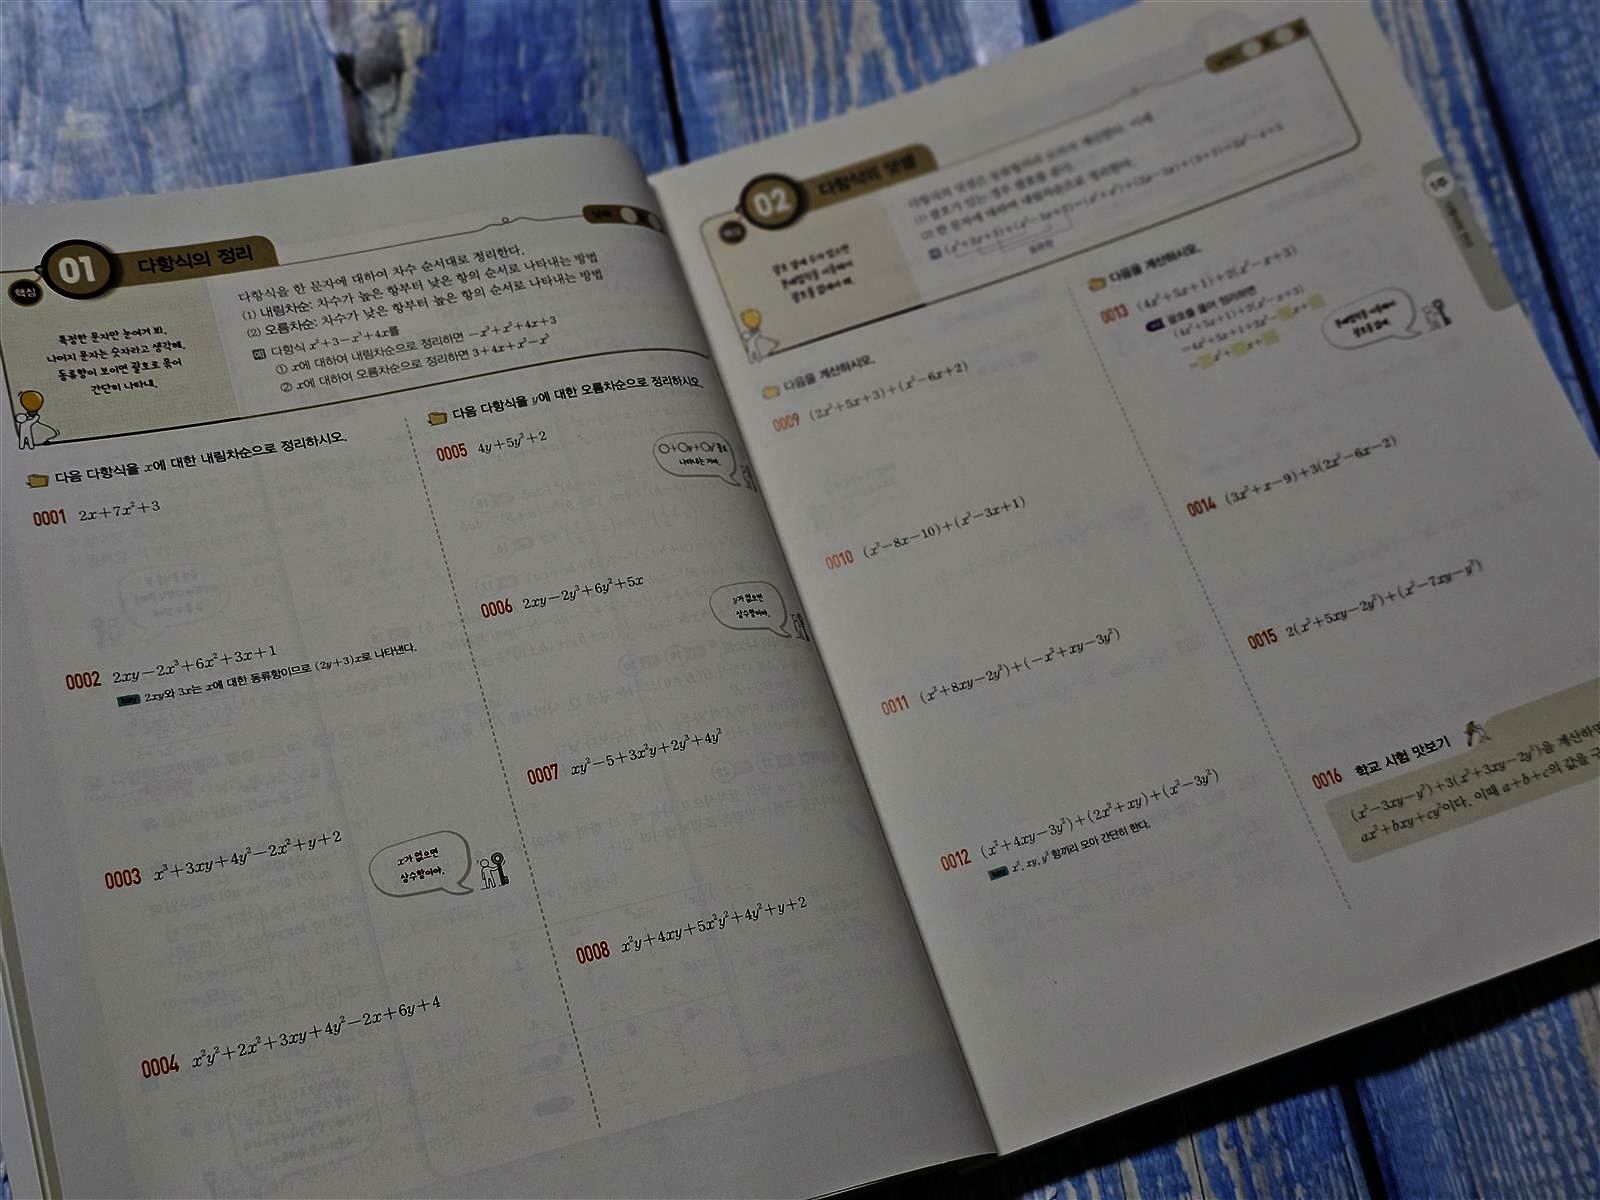 01 다항식의 정리
핵심
특정한 문자만 눈여겨 봐.
나머지 문자는 숫자라고 생각해.
동류항이 보이면 괄호로 묶어
간단히 나타내.
날짜
다항식을 한 문자에 대하여 차수 순서대로 정리한다.
(1) 내림차순: 차수가 높은 항부터 낮은 항의 순서로 나타내는 방법
(2) 오름차순: 차수가 낮은 항부터 높은 항의 순서로 나타내는 방법
예 다항식 x²+3-x³+4x를
① x에 대하여 내림차순으로 정리하면 -x³+x²+4x+3
② x에 대하여 오름차순으로 정리하면 3+4x+x²-x³
다음 다항식을 x에 대한 내림차순으로 정리하시오.
0001 2x+7x²+3
0002 2xy-2x³+6x²+3x+1
key 2xy와 3x는 x에 대한 동류항이므로 (2y+3)x로 나타낸다.
0003 x³+3xy+4y²-2x²+y+2
x가 없으면
상수항이야.
0004 x²y²+2x²+3xy+4y²-2x+6y+4
다음 다항식을 y에 대한 오름차순으로 정리하시오.
0005 4y+5y²+2
○+○y+○y²꼴로
나타내는 거야.
0006 2xy-2y³+6y²+5x
y가 없으면
상수항이야.
0007 xy²-5+3x²y+2y³+4y²
0008 x²y+4xy+5x²y²+4y²+y+2
02 다항식의 덧셈
핵심
다음을 계산하시오.
0009 (2x²+5x+3)+(x²-6x+2)
0010 (x²-8x-10)+(x²-3x+1)
0011 (x²+8xy-2y²)+(-x²+xy-3y²)
0012 (x²+4xy-3y²)+(2x²+xy)+(x²-3y²)
key x², xy, y² 항끼리 모아 간단히 한다.
다음을 계산하시오.
0013 (4x²+5x+1)+2(x²-x+3)
괄호를 풀어 정리하면
(4x²+5x+1)+2(x²-x+3)
=4x²+5x+1+2x²-
0014 (3x²+x-9)+3(2x²-6x-2)
0015 2(x²+5xy-2y²)+(x²-7xy-y²)
0016 학교 시험 맛보기
(x²-3xy-y²)+3(x²+3xy-2y²)을 계산하면
ax²+bxy+cy²이다. 이때 a+b+c의 값을 구